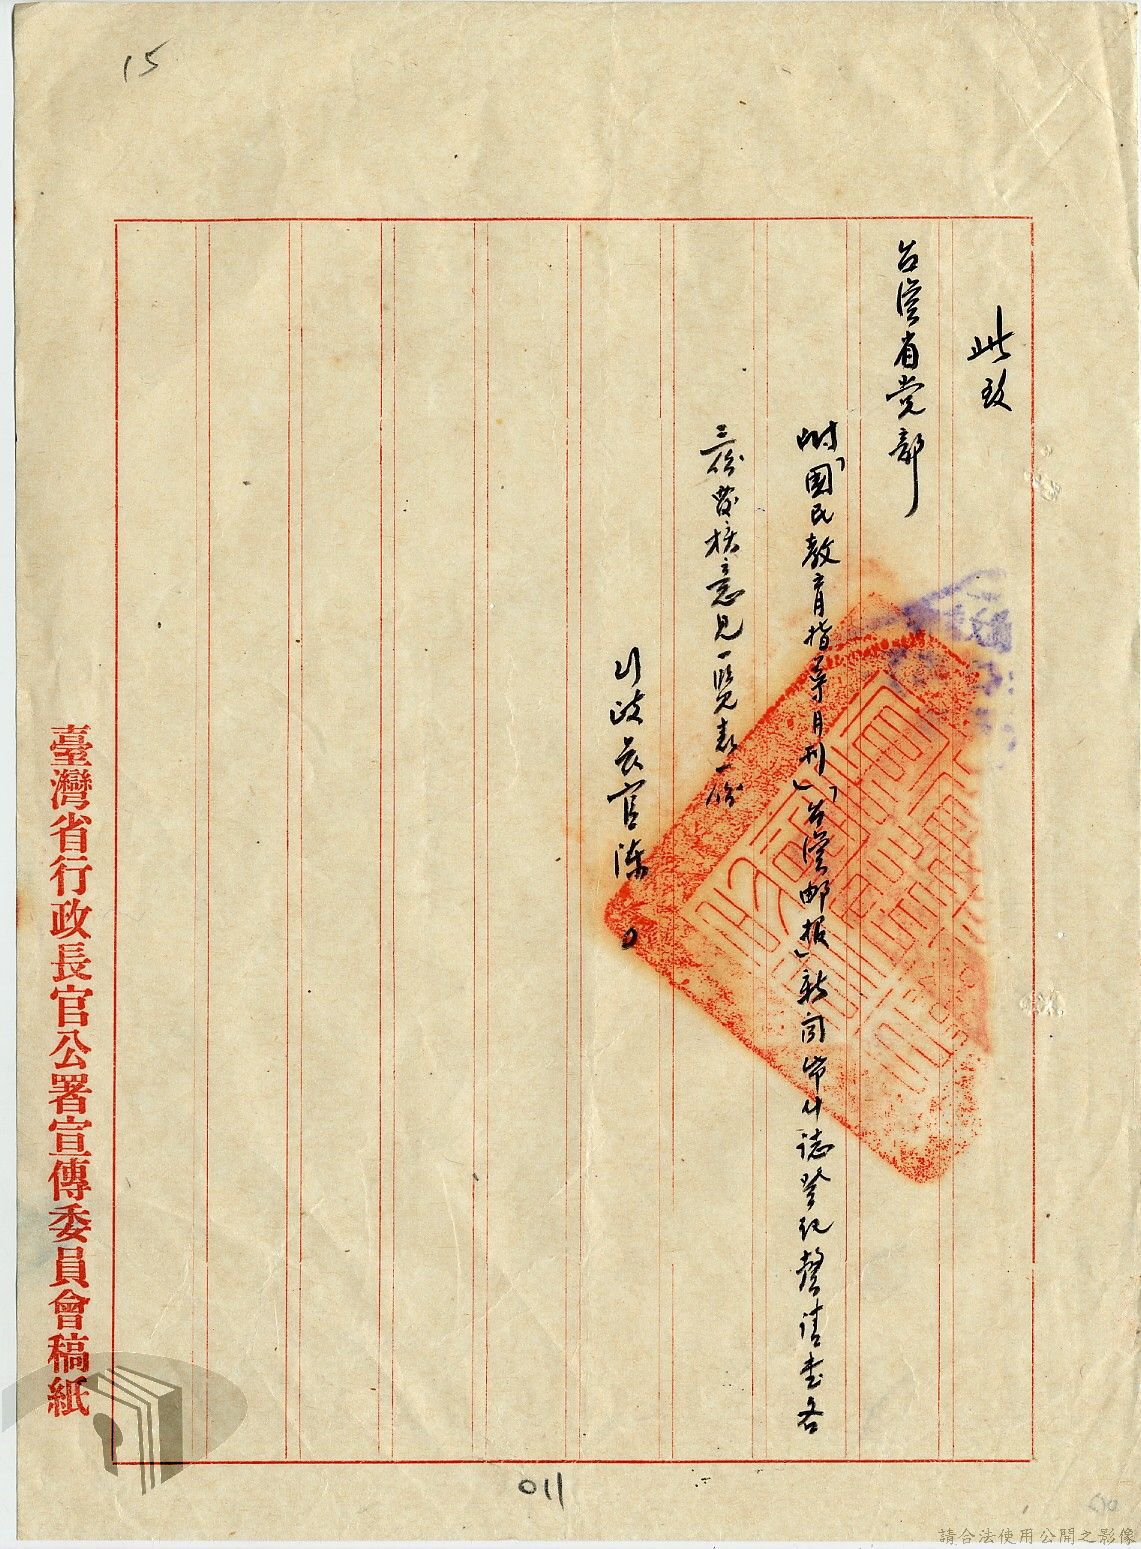 15
此致
台灣省党部
附「國民教育指導月刊」「台灣郵报」新闻帋什誌登记聲请書各
三份暨核意見一覽表一份
行政長官陳〇
臺灣省行政長官公署宣傳委員會稿紙
011
請合法使用公開之影像